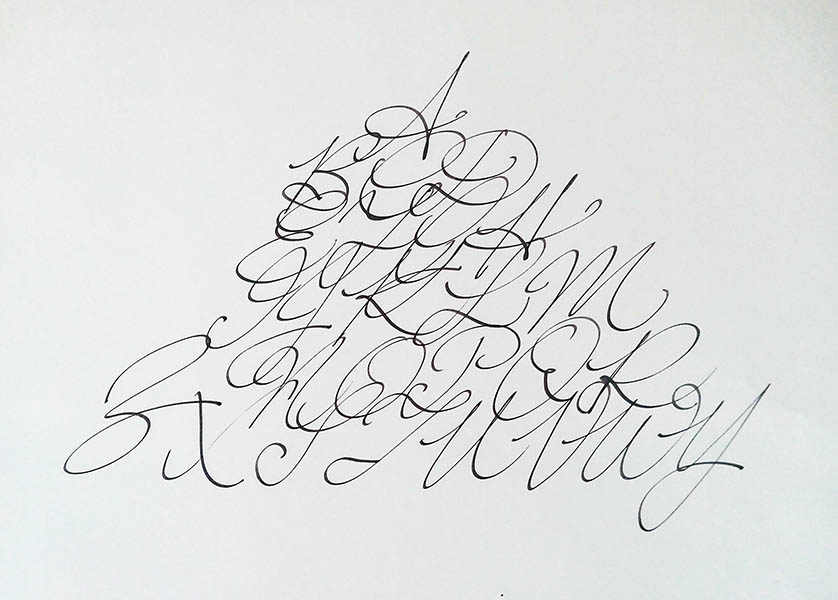 A
B C D
E F G H
I J K L M
N O P Q R
Z X S T U V W Y